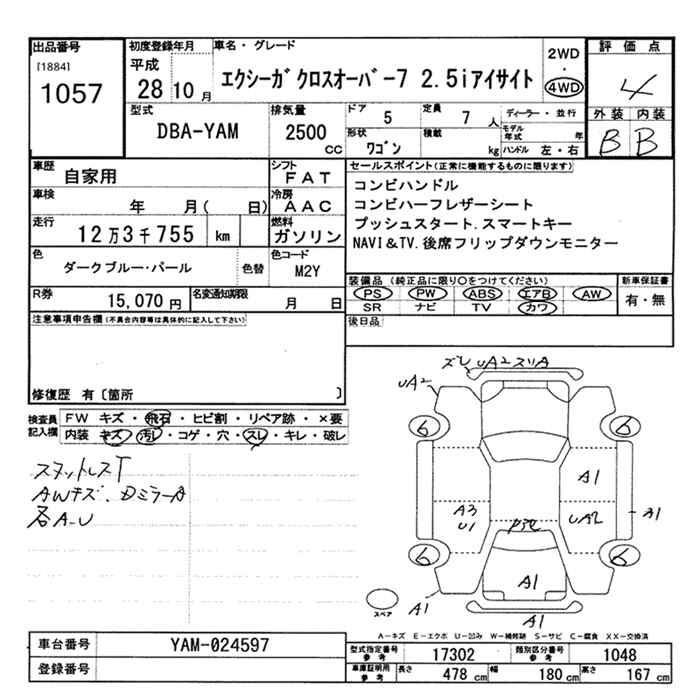 出品番号
[1884]
1057
初度登録年月
平成
28 10 月
車名・グレード
エクシーガ クロスオーバー7 2.5iアイサイト
2WD
4WD
評価点
4
外装 内装
B B
型式
DBA-YAM
排気量
2500 cc
ドア
5
定員
7 人
ディーラー・並行
形状
ワゴン
積載
kg
モデル年式
年
ハンドル 左・右
車歴
自家用
シフト
FAT
車検
年 月( 日)
冷房
AAC
走行
12万3千755 km
燃料
ガソリン
色
ダークブルー・パール
色替
色コード
M2Y
R券
15,070 円
名変通知期限
月 日
セールスポイント(正常に機能するものに限ります)
コンビハンドル
コンビハーフレザーシート
プッシュスタート.スマートキー
NAVI&TV.後席フリップダウンモニター
装備品 (純正品に限り○をつけてください)
PS PW ABS エアB AW
SR ナビ TV カワ
新車保証書
有・無
後日品
注意事項申告欄(不具合内容等は具体的に記入して下さい)
修復歴 有〔箇所 〕
検査員記入欄
FW キズ・飛石・ヒビ割・リペア跡・×要
内装 キズ・汚レ・コゲ・穴・スレ・キレ・破レ
スタットレスT
AWキズ、DミラーA
各A-U
ズレ UA2 スリA
UA2
6 6
A1
A3
U1
UA2
A1
6 6
A1
A1
A1
スペア
A-キズ E-エクボ U-凹み W-補修跡 S-サビ C-腐食 XX-交換済
車台番号
YAM-024597
登録番号
型式指定番号
参考
17302
類別区分番号
参考
1048
車庫証明用
参考
長さ
478 cm
幅
180 cm
高さ
167 cm